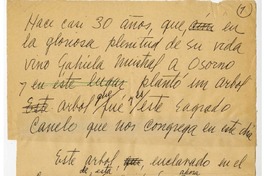 7
Hace casi 30 años, que, en
la gloriosa plenitud de su vida
vino Gabriela Mistral a Osorno
y en este lugar plantó un arbol
Este arbol que fue el este Sagrado
Canelo que nos congrega en este día
Este arbol, enclavado en el
de, esta